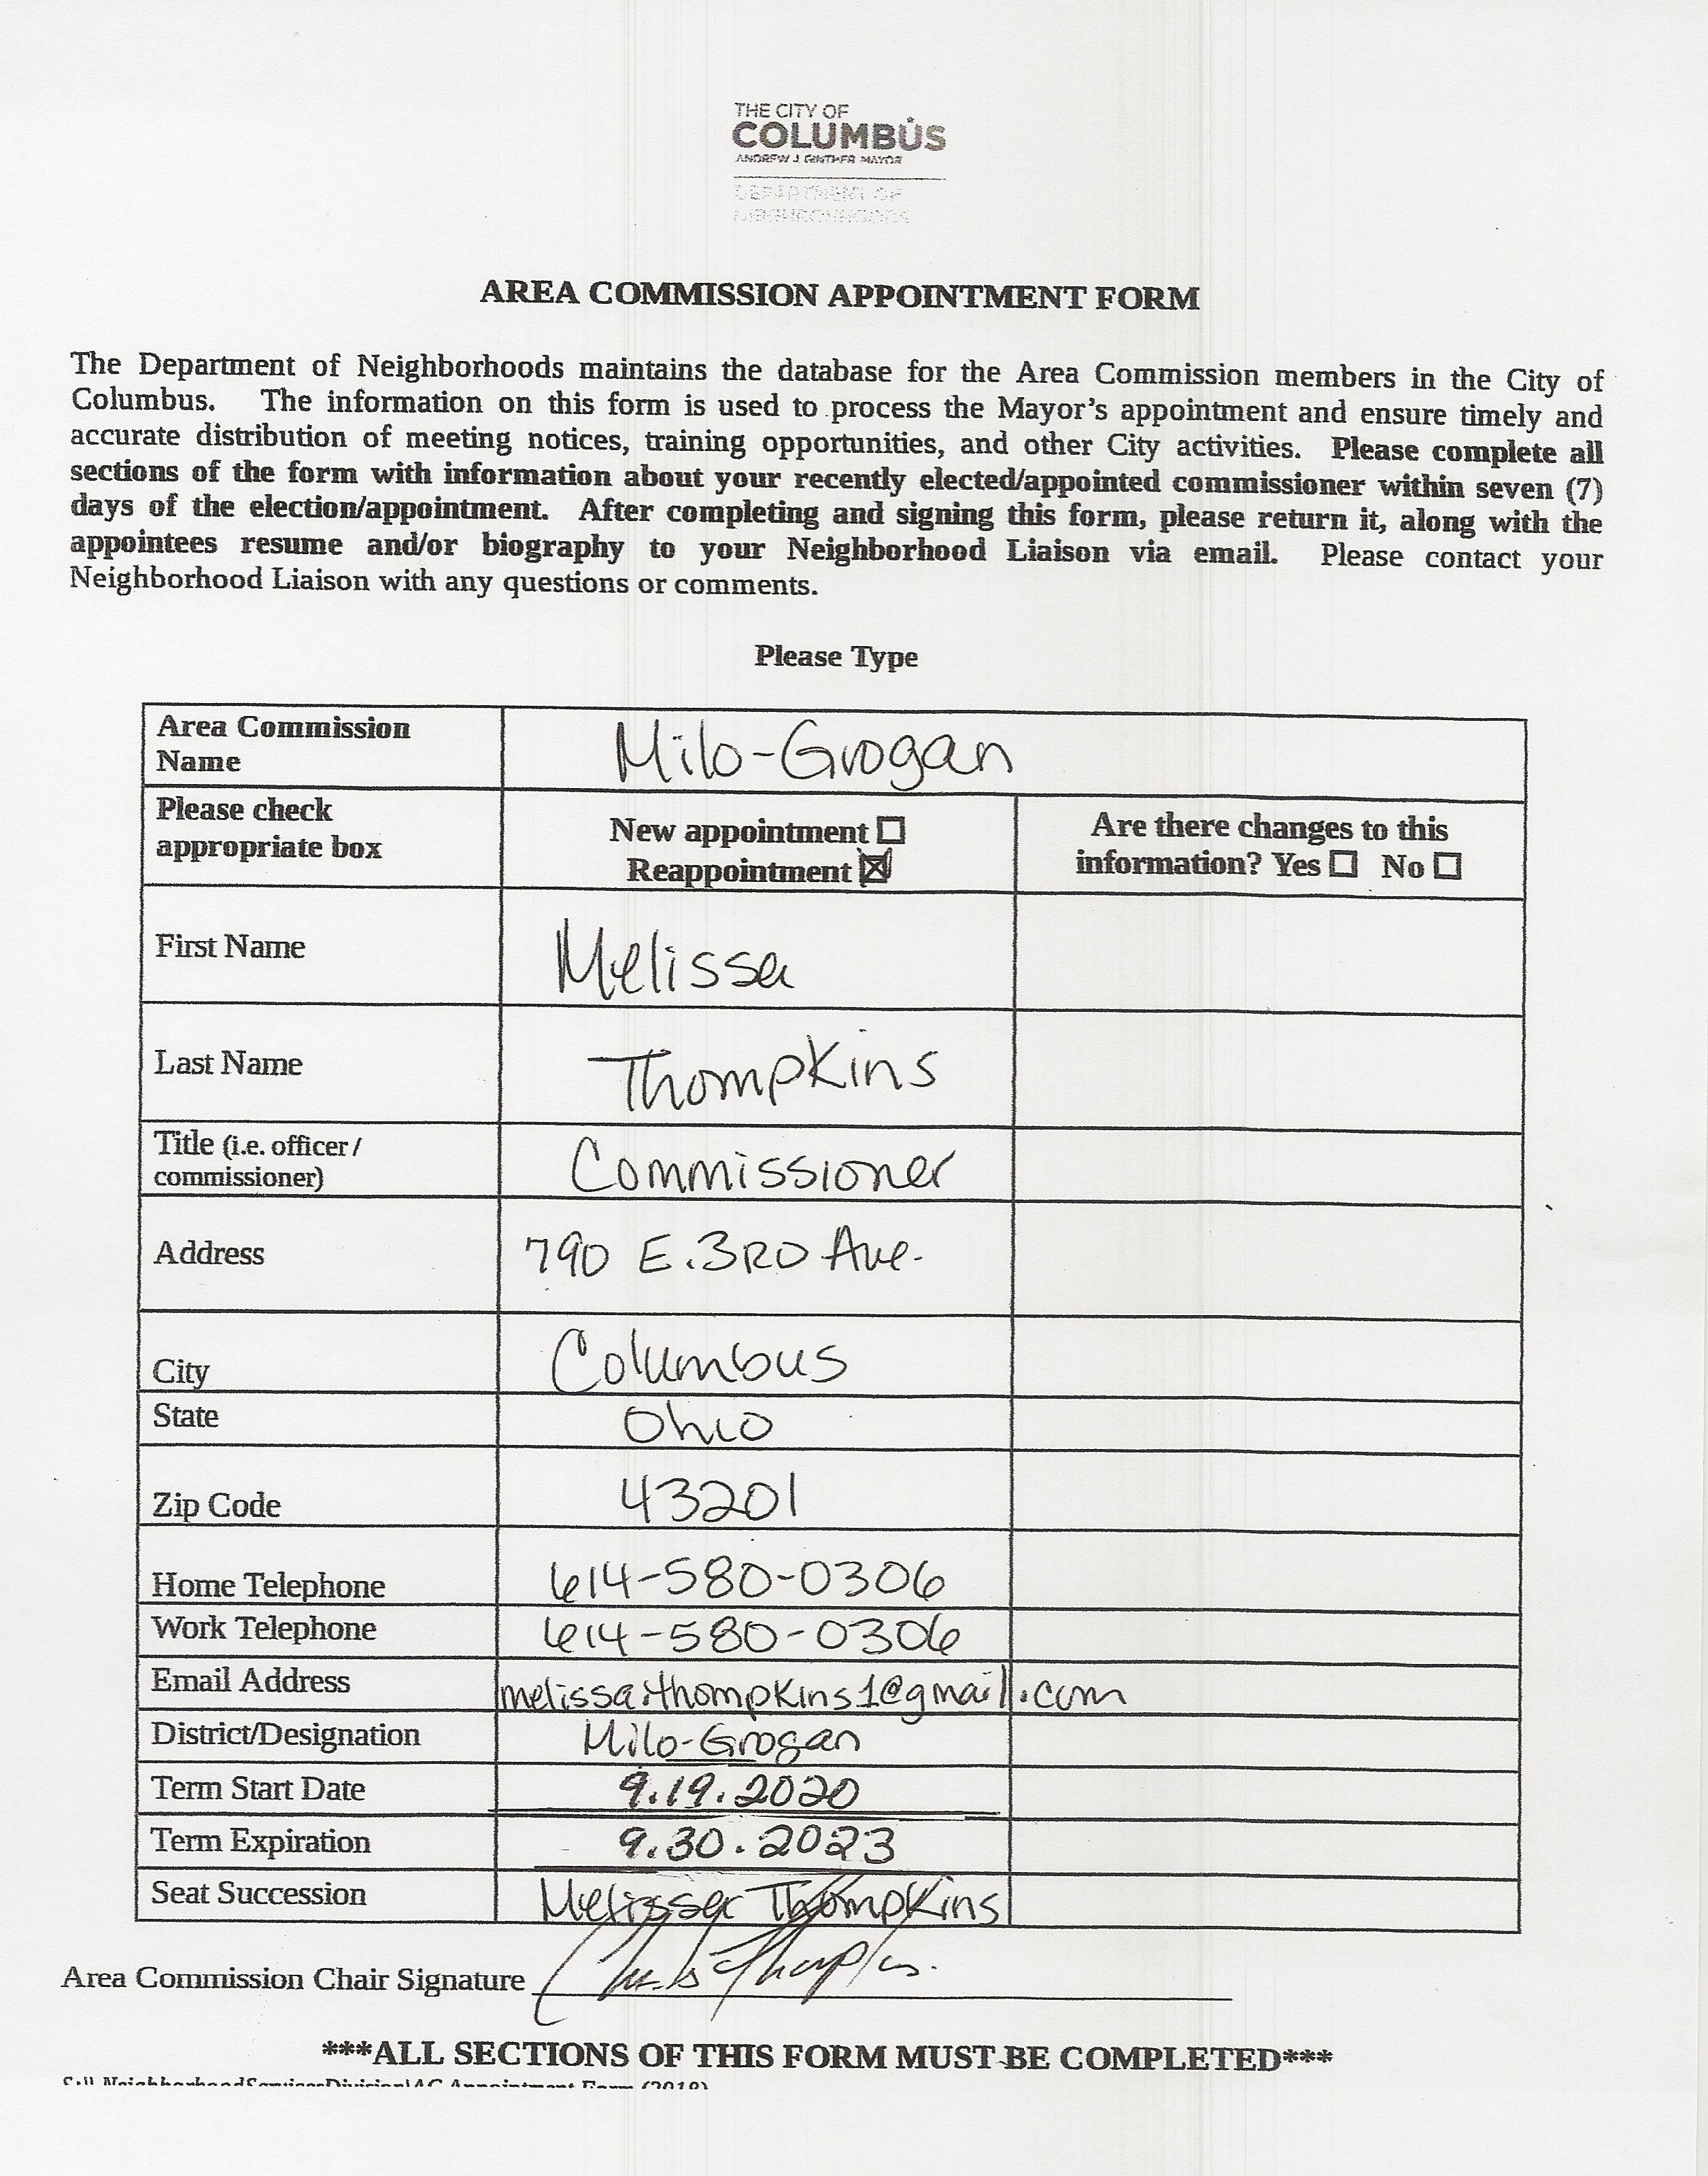 THE CITY OF
COLUMBUS
ANDREW J. GINTHER, MAYOR
DEPARTMENT OF
NEIGHBORHOODS
AREA COMMISSION APPOINTMENT FORM
The Department of Neighborhoods maintains the database for the Area Commission members in the City of
Columbus. The information on this form is used to process the Mayor's appointment and ensure timely and
accurate distribution of meeting notices, training opportunities, and other City activities. Please complete all
sections of the form with information about your recently elected/appointed commissioner within seven (7)
days of the election/appointment. After completing and signing this form, please return it, along with the
appointees resume and/or biography to your Neighborhood Liaison via email. Please contact your
Neighborhood Liaison with any questions or comments.
Please Type
Area Commission
Name
Milo-Grogan
Please check
appropriate box
New appointment ☐
Reappointment ☒
Are there changes to this
information? Yes ☐ No ☐
First Name Melissa
Last Name Thompkins
Title (i.e. officer /
commissioner)
Commissioner
Address 790 E. 3RD Ave.
City Columbus
State Ohio
Zip Code 43201
Home Telephone 614-580-0306
Work Telephone 614-580-0306
Email Address melissa.thompkins1@gmail.com
District/Designation Milo-Grogan
Term Start Date 9.19.2020
Term Expiration 9.30.2023
Seat Succession Melissa Thompkins
Area Commission Chair Signature
***ALL SECTIONS OF THIS FORM MUST BE COMPLETED***
S:\\NeighborhoodServicesDivision\AC Appointment Form (2018)